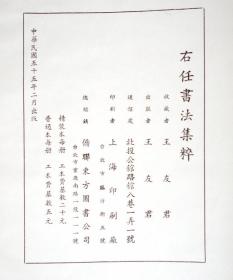 右任書法集粹
收藏者 王友君
出版者 王友君
通信處 北投公館路八巷一弄一號
印刷者 上海印刷廠
台北市臨沂街五號
總經銷 僑聯東方圖書公司
台北市重慶南路一段一一一號
精裝本每冊 工本費基數二十元
普通本每冊 工本費基數五元
中華民國五十五年二月出版